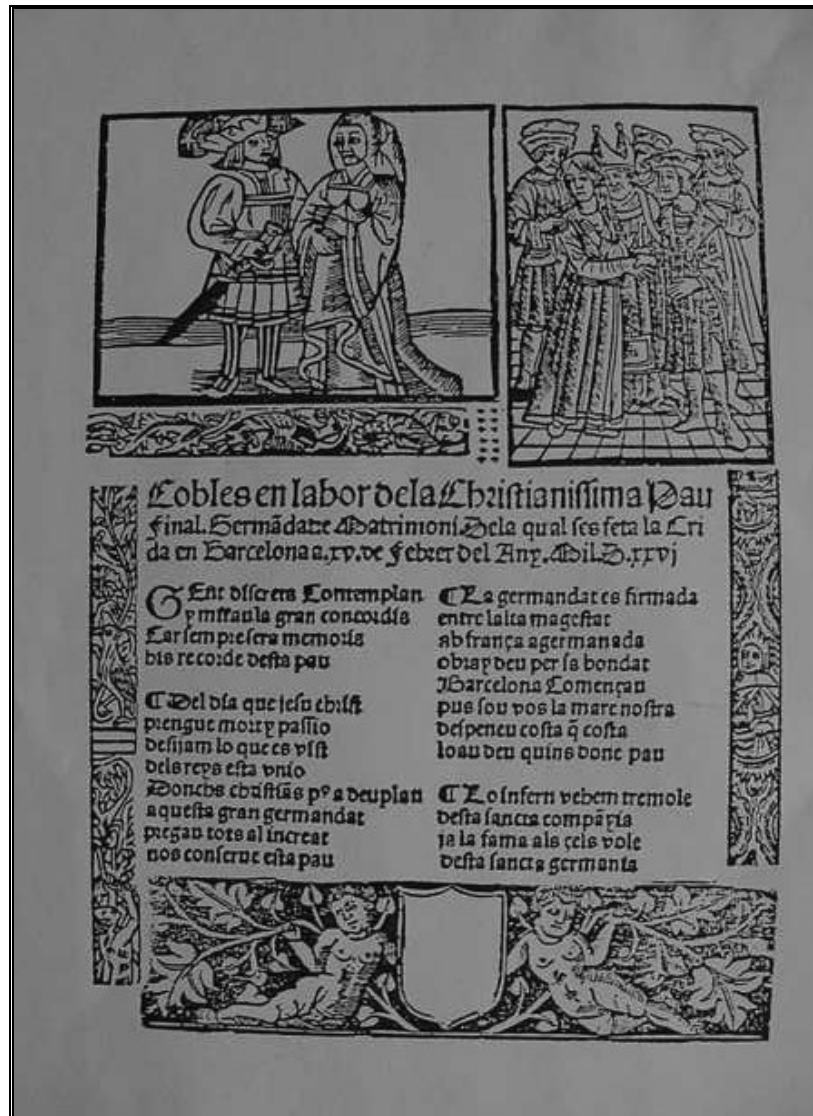 Cobles en labor dela Christianissima Pau
final. Germãdat e Matrimoni. Dela qual ses feta la Cri
da en Barcelona a.xv. de febrer del Any. Mil. D. xxvj
GEnt discreta Contemplau
y mirau la gran concordia
Car sempre sera memoria
bis recorde desta pau
¶ Del dia que jesu christ
prengue mort y passio
desijam lo que es vist
dels reys esta vnio
Donchs christiãs pº a deu plau
aquesta gran germandat
pregau tots al increat
nos conserue esta pau
¶ La germandat es firmada
entre lalta magestat
ab frança agermanada
obra y deu per sa bondat
Barcelona Començau
pus sou vos la mare nostra
despeneu costa q̃ costa
loau deu quins done pau
¶ Lo infern vehem tremole
desta sancta compãyia
ja la fama als çels vole
desta sancta germania